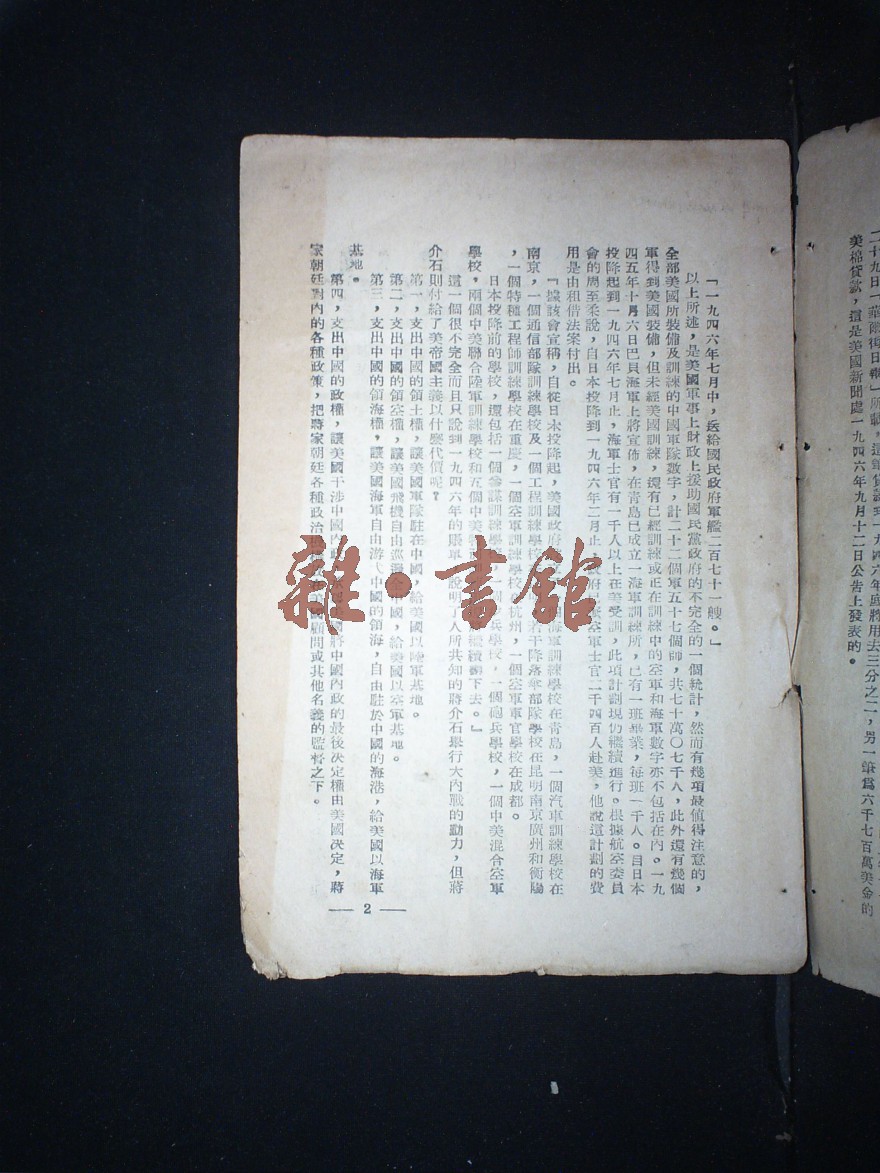 「一九四六年七月中，送給國民政府軍艦二百七十一艘。」
以上所述，是美國軍事上財政上援助國民黨政府的不完全的一個統計，然而有幾項最値得注意的，
全部美國所裝備及訓練的中國軍隊數字，計二十二個軍五十七個師，共七十萬〇七千人，此外還有幾個
軍得到美國裝備，但未經美國訓練，還有已經訓練或正在訓練中的空軍和海軍數字亦不包括在內。一九
四五年十月六日巴貝海軍上將宣佈，在青島已成立一海軍訓練所，已有一班畢業，每班一千人。自日本
投降起到一九四六年七月止，海軍士官有一千人以上在美受訓，此項計劃現仍繼續進行。根據航空委員
會的周至柔說，自日本投降到一九四六年二月止，府 空軍士官二千四百人赴美，他說這計劃的費
用是由租借法案付出。
『據該會宣稱，自從日本投降起，美國政府 海軍訓練學校在青島，一個汽車訓練學校在
南京，一個通信部隊訓練學校及一個工程訓練學校 若干降落傘部隊學校在昆明南京廣州和衡陽
，一個特種工程師訓練學校在重慶，一個空軍訓練學校 杭州，一個空軍軍官學校在成都。
日本投降前的學校，還包括一個參謀訓練學 兵學校，一個砲兵學校，一個中美混合空軍
學校，兩個中美聯合陸軍訓練學校和五個中美 繼續辦下去。』
這一個很不完全而且只說到一九四六年的賬單 說明了人所共知的蔣介石舉行大內戰的動力，但蔣
介石則付給了美帝國主義以什麼代價呢？
第一，支出中國的領土權，讓美國軍隊駐在中國，給美國以陸軍基地。
第二，支出中國的領空權，讓美國飛機自由巡 中國，給美國以空軍基地。
第三，支出中國的領海權，讓美國海軍自由游弋中國的領海，自由駐於中國的海港，給美國以海軍
基地。
第四，支出中國的政權，讓美國干涉中國 將中國內政的最後決定權由美國決定，蔣
家朝廷對內的各種政策，把蔣家朝廷各種政治 國顧問或其他名義的監督之下。
— 2 —
雜·書館
二十九日「華爾街日報」所載，這筆貸款到一九四六年底將用去三分之二，另一筆爲六千七百萬美金的
美棉貸款，還是美國新聞處一九四六年九月十二日公告上發表的。